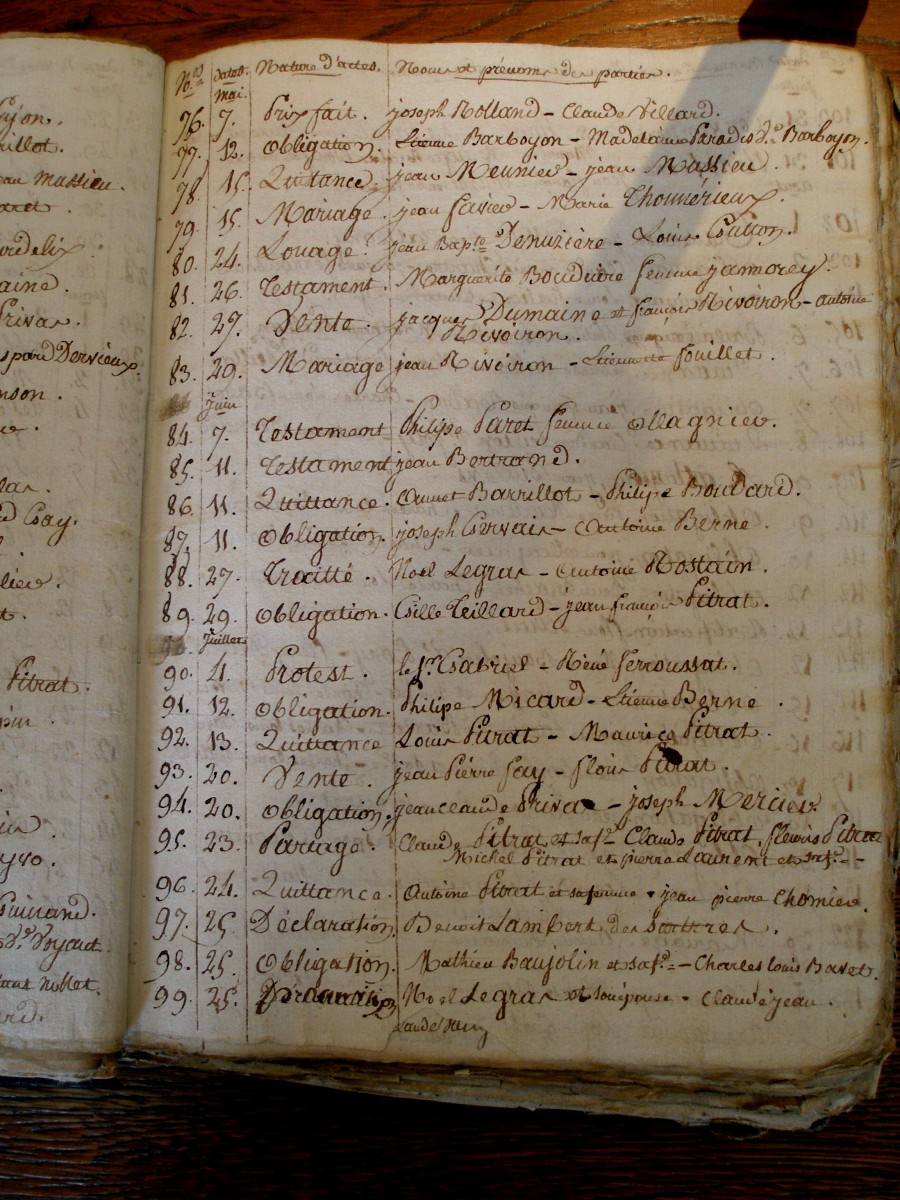 yjon.
rillot.
au massieu.
aret.
urdelix
aine.
Privas.
spard Dervieux.
nson.
d Gay.
lier.
Pitrat.
pin.
Guinand.
Ve. Voyaut
ard.
Nos. dates. Nature d'actes. Noms et prénoms des parties.
mai.
76. 7. Prix fait. joseph Rolland - Claude Villard.
77. 12. Obligation. Etienne Barboyon - Madelaine Paradis Ve. Barboyon.
78. 15. Quitance. jean Meunier - jean Massieu.
79. 15. Mariage. jean Favier - Marie Thoumérieux.
80. 24. Louage. jean Bapte. Denuzière - Louis Coutton.
81. 26. Testament. Marguerite Boudière femme jamorey.
82. 27. Vente. jacques Dumaine et françois Rivoiron - antoine
Rivoiron.
83. 29. Mariage jean Rivoiron - Etiennette fouillet.
juin
84. 7. Testament Philipe Paret femme ollagnier.
85. 11. Testament jean Bertrand.
86. 11. Quittance. Barrillot - Philipe Boudard.
87. 11. Obligation. joseph Gervais - antoine Berne.
88. 27. Traitté. Noel Legras - antoine Rostain.
89. 29. Obligation. Teillard - jean françois Pitrat.
juillet
90. 4. Protest. le Sr. Gabriel - Réné ferroussat.
91. 12. Obligation. Philipe Micard - Etienne Berne.
92. 13. Quittance Louis Pitrat - Maurice Pitrat.
93. 20. Vente. jean Pierre fay - flouis Pitrat.
94. 20. Obligation. jean claude Privas - joseph Mercier
95. 23. Partage. Claude Pitrat et sa fe. Claude Pitrat, fleuris Pitrat
Michel Pitrat et pierre Laurent et sa fe. - -
96. 24. Quittance. antoine Pitrat et sa femme - jean pierre Chomier.
97. 25. Déclaration. Benoit Lambert des
98. 25. Obligation. Mathieu Baujolin et sa fe. - Charles louis Bavet.
99. 25. Noel Legras et son épouse - Claude jean.